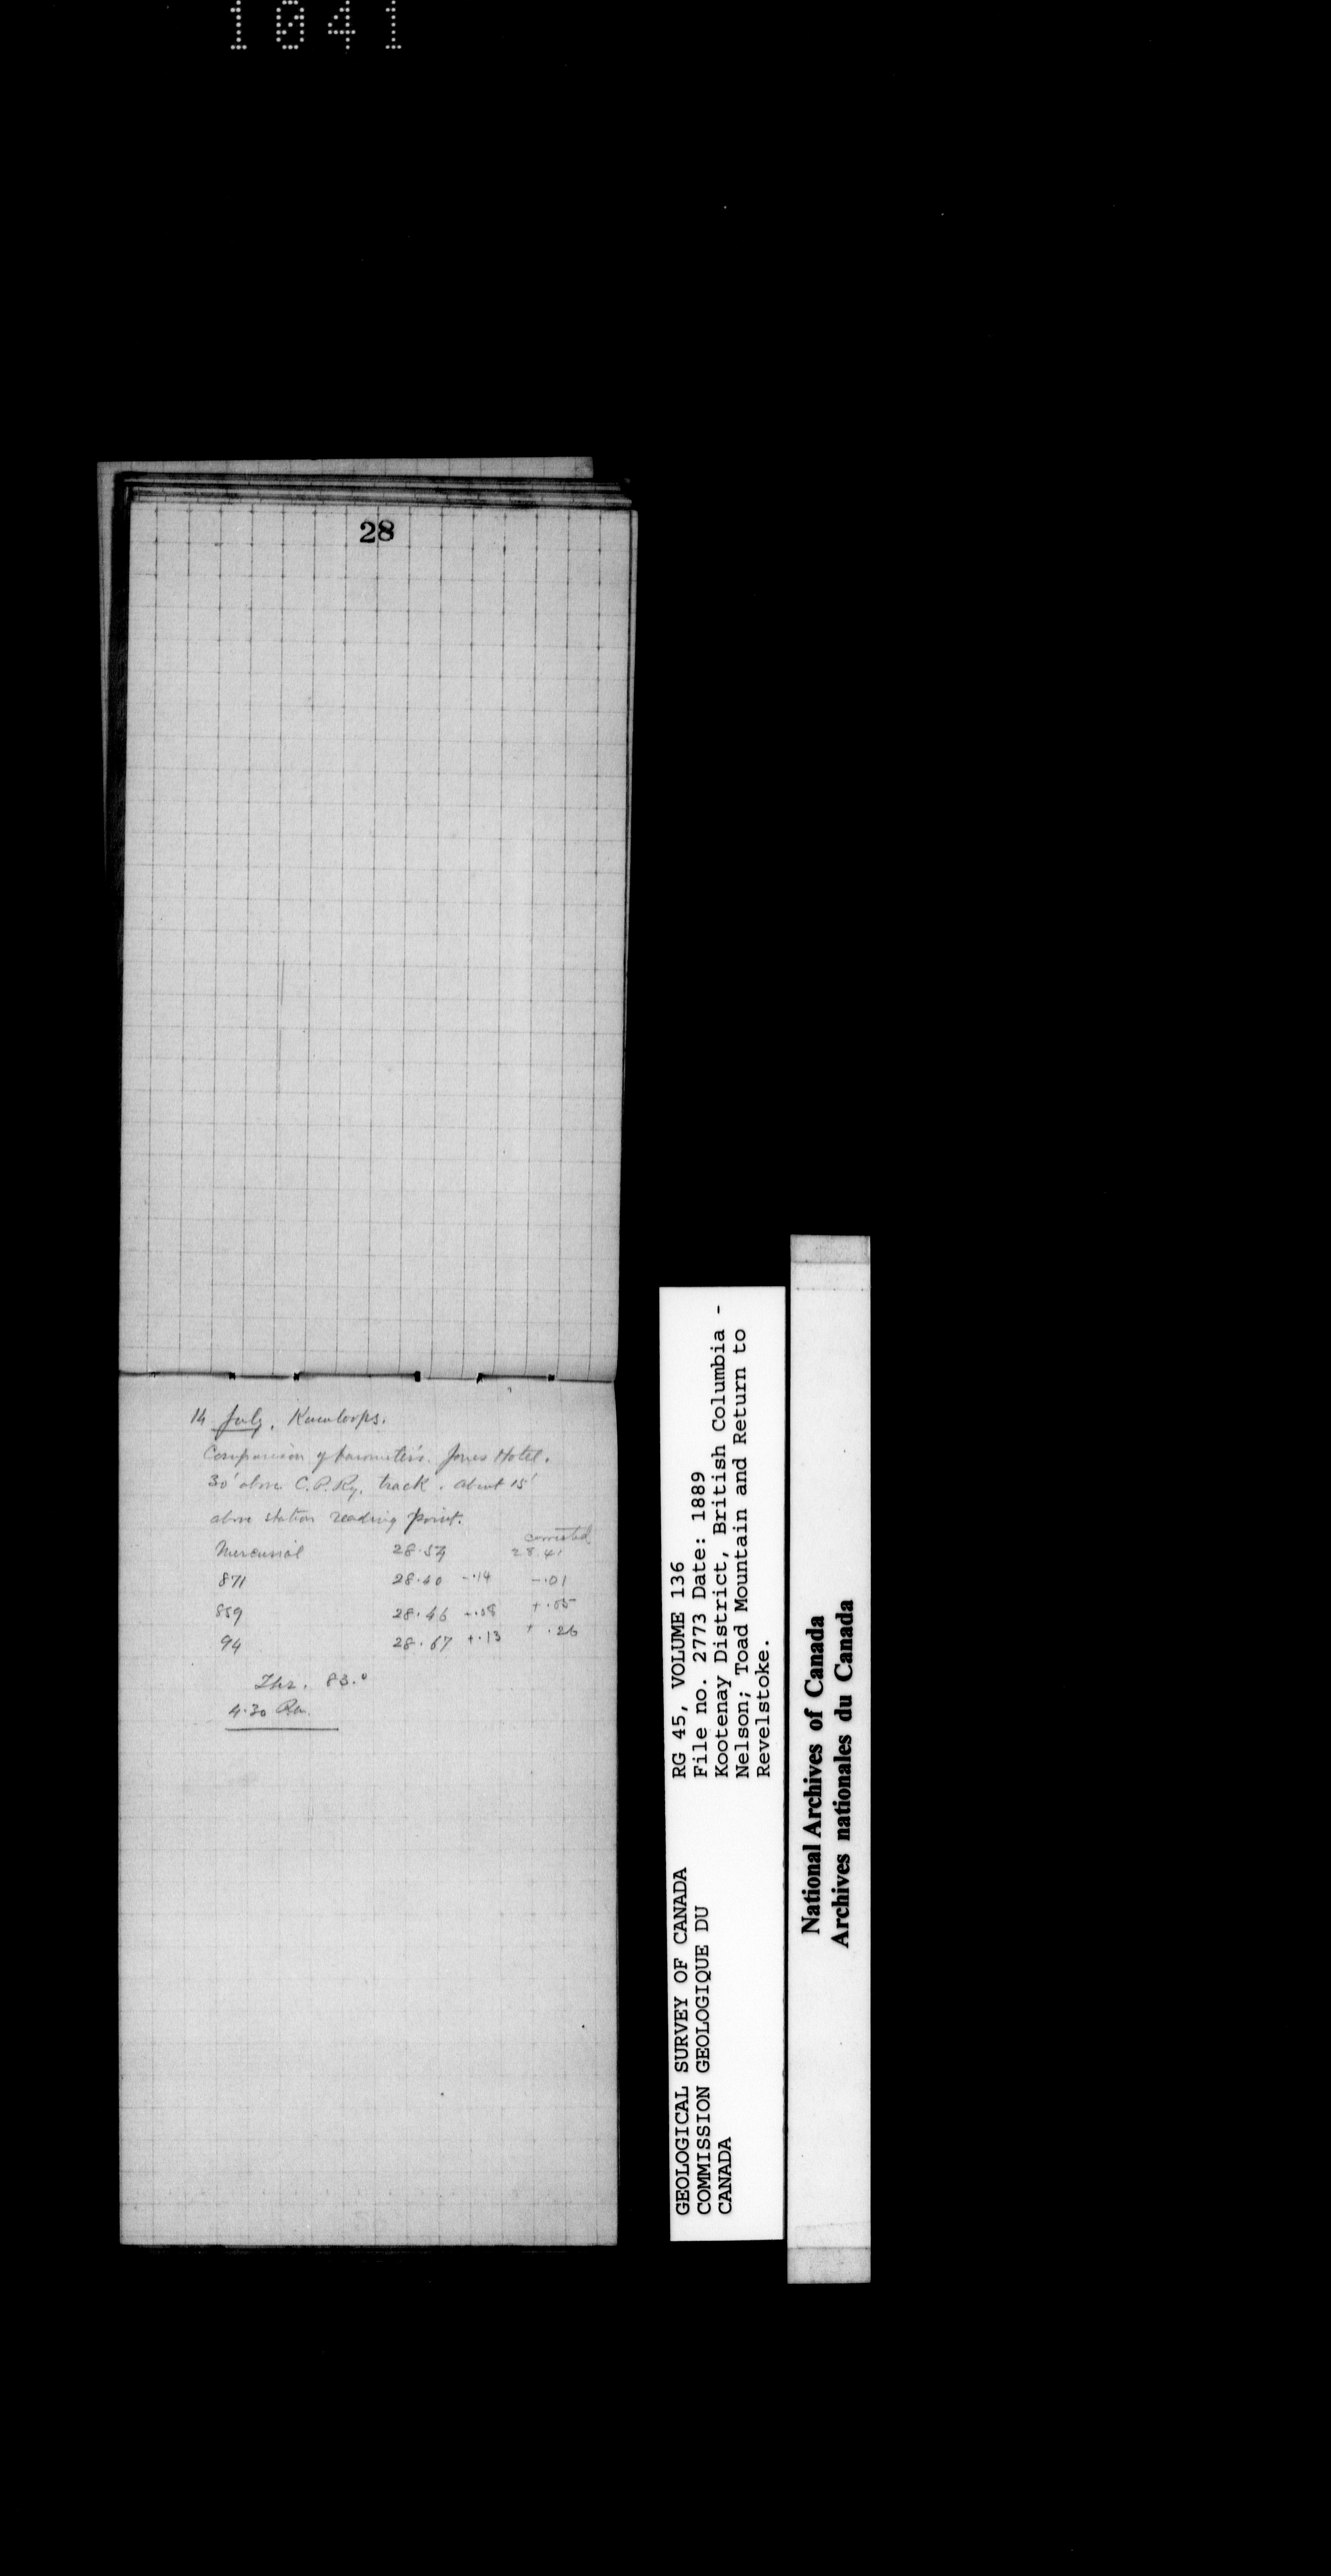 1041
28
14 July. Kamloops.
Comparison of barometers. Jones Hotel.
30' above C.P.Ry. track. about 15'
above station reading point.
corrected
Mercurial 28.54 28.41
871 28.40 -.14 -.01
859 28.46 -.08 +.05
94 28.67 +.13 +.26
Thr. 83.°
4.30 P.m.
GEOLOGICAL SURVEY OF CANADA
COMMISSION GEOLOGIQUE DU
CANADA
RG 45, VOLUME 136
File no. 2773 Date: 1889
Kootenay District, British Columbia -
Nelson; Toad Mountain and Return to
Revelstoke.
National Archives of Canada
Archives nationales du Canada